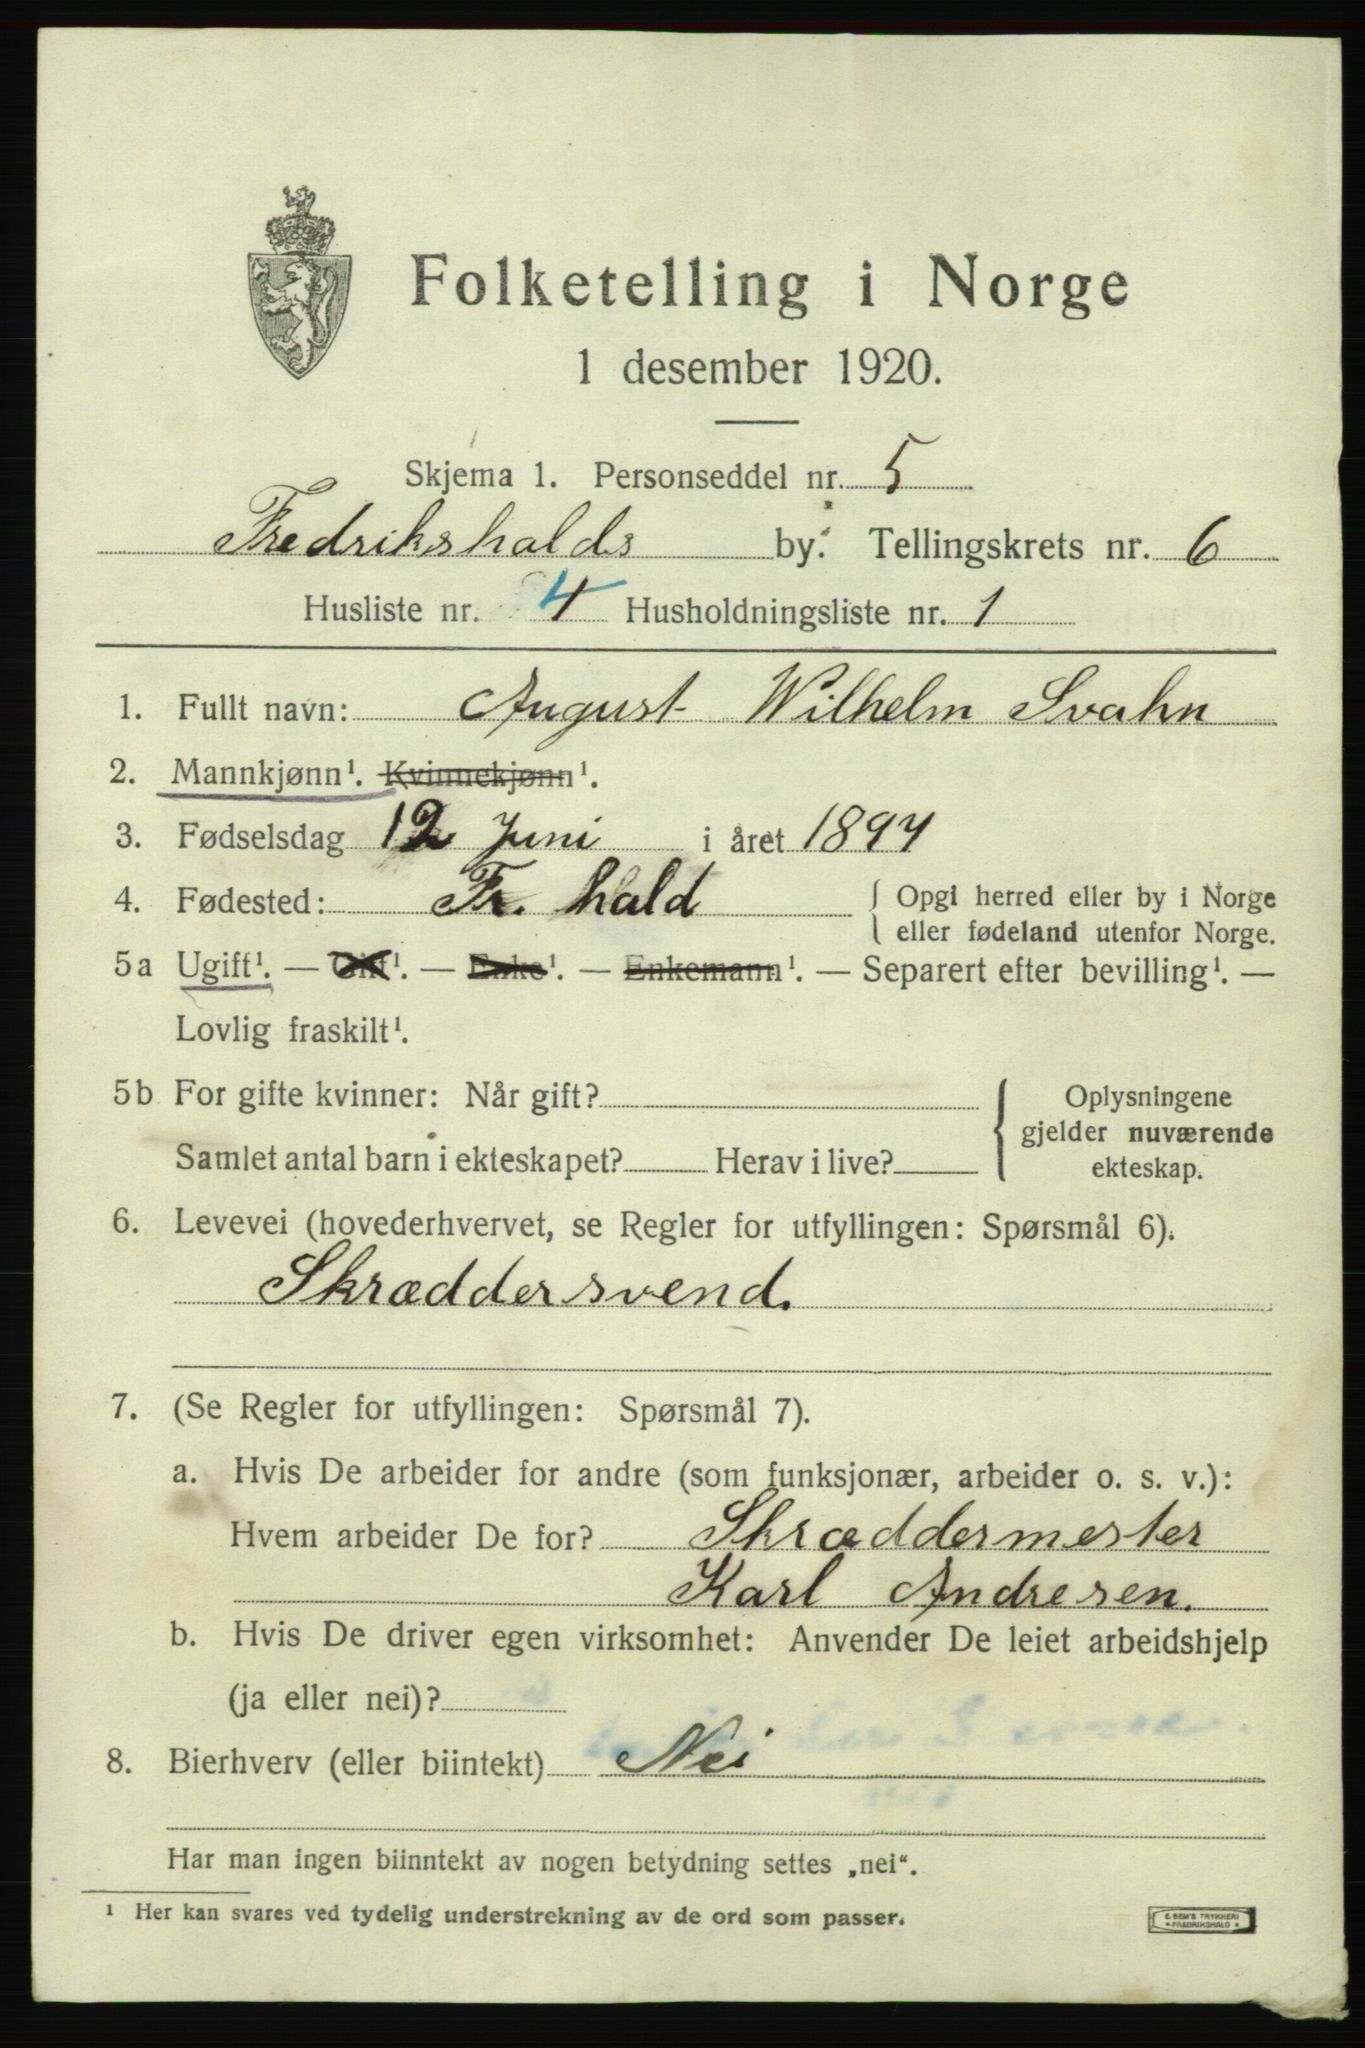 Folketelling i Norge
1 desember 1920.
Skjema 1. Personseddel nr. 5
Fredrikshalds by. Tellingskrets nr. 6
Husliste nr. 4 Husholdningsliste nr. 1
1. Fullt navn: August Wilhelm Svahn
2. Mannkjønn¹. Kvinnekjønn¹.
3. Fødselsdag 12 Juni i året 1894
4. Fødested: Fr. hald { Opgi herred eller by i Norge
eller fødeland utenfor Norge.
5a Ugift¹. — Gift¹. — Enke¹. — Enkemann¹. — Separert efter bevilling¹. —
Lovlig fraskilt¹.
5b For gifte kvinner: Når gift? { Oplysningene
gjelder nuværende
Samlet antal barn i ekteskapet? Herav i live?
ekteskap.
6. Levevei (hovederhvervet, se Regler for utfyllingen: Spørsmål 6).
Skræddersvend.
7. (Se Regler for utfyllingen: Spørsmål 7).
a. Hvis De arbeider for andre (som funksjonær, arbeider o. s. v.):
Hvem arbeider De for? Skræddermester
Karl Andresen.
b. Hvis De driver egen virksomhet: Anvender De leiet arbeidshjelp
(ja eller nei)?
8. Bierhverv (eller biintekt) Nei
Har man ingen biinntekt av nogen betydning settes „nei“.
¹ Her kan svares ved tydelig understrekning av de ord som passer.
E. SEM'S TRYKKERI
FREDRIKSHALD